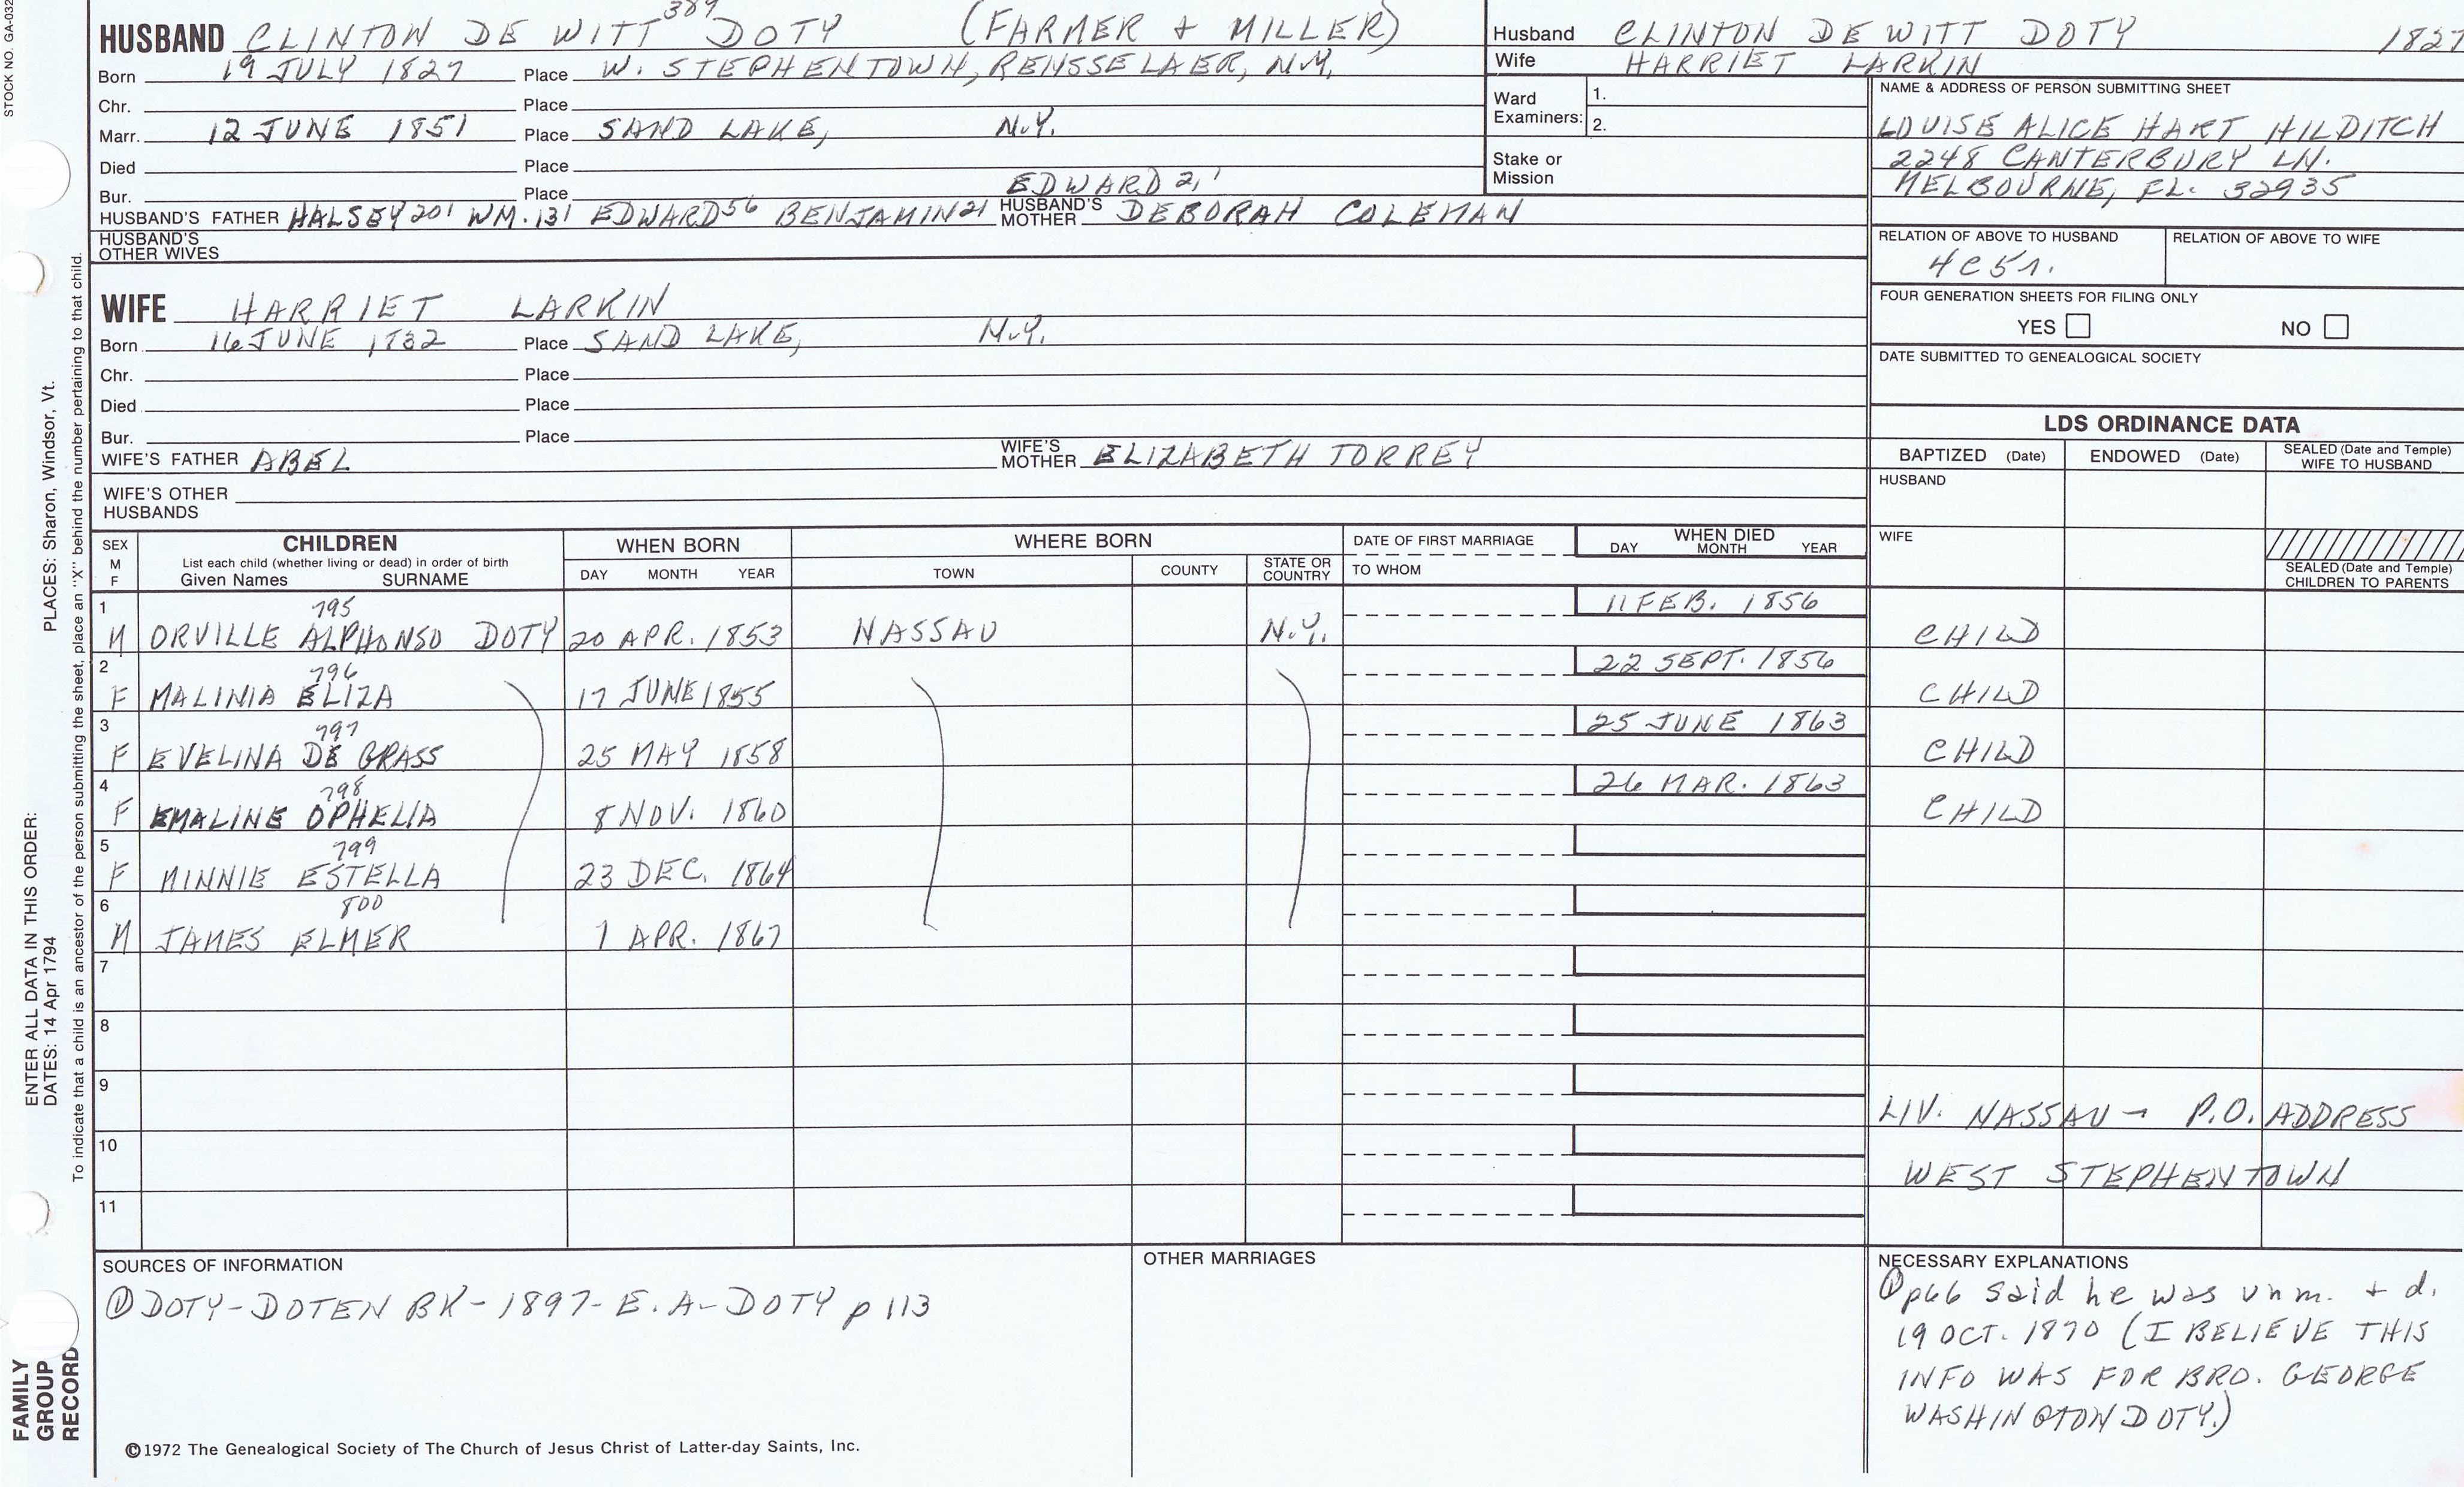 STOCK NO. GA-032
389
HUSBAND CLINTON DE WITT DOTY (FARMER + MILLER)
Born 19 JULY 1827 Place W. STEPHENTOWN, RENSSELAER, N.Y.
Chr. Place
Marr. 12 JUNE 1851 Place SAND LAKE, N.Y.
Died Place
Bur. Place
EDWARD 2, 1
HUSBAND'S FATHER HALSEY 201 WM. 131 EDWARD 56 BENJAMIN 21 HUSBAND'S MOTHER DEBORAH COLEMAN
HUSBAND'S OTHER WIVES
WIFE HARRIET LARKIN
Born 16 JUNE 1832 Place SAND LAKE, N.Y.
Chr. Place
Died Place
Bur. Place
WIFE'S FATHER ABEL WIFE'S MOTHER ELIZABETH TORREY
WIFE'S OTHER HUSBANDS
Husband CLINTON DE WITT DOTY 1827
Wife HARRIET LARKIN
Ward Examiners: 1.
2.
Stake or Mission
NAME & ADDRESS OF PERSON SUBMITTING SHEET
LOUISE ALICE HART HILDITCH
2248 CANTERBURY LN.
MELBOURNE, FL. 32935
RELATION OF ABOVE TO HUSBAND RELATION OF ABOVE TO WIFE
4C5r.
FOUR GENERATION SHEETS FOR FILING ONLY
YES NO
DATE SUBMITTED TO GENEALOGICAL SOCIETY
LDS ORDINANCE DATA
BAPTIZED (Date) ENDOWED (Date) SEALED (Date and Temple) WIFE TO HUSBAND
HUSBAND
WIFE
SEALED (Date and Temple) CHILDREN TO PARENTS
SEX M F CHILDREN WHEN BORN WHERE BORN DATE OF FIRST MARRIAGE WHEN DIED
List each child (whether living or dead) in order of birth
Given Names SURNAME DAY MONTH YEAR TOWN COUNTY STATE OR COUNTRY TO WHOM DAY MONTH YEAR
1 795 11 FEB. 1856
M ORVILLE ALPHONSO DOTY 20 APR. 1853 NASSAU N.Y. CHILD
2 796 22 SEPT. 1856
F MALINIA ELIZA 17 JUNE 1855 CHILD
3 797 25 JUNE 1863
F EVELINA DE GRASS 25 MAY 1858 CHILD
4 798 26 MAR. 1863
F EMALINE OPHELIA 8 NOV. 1860 CHILD
5 799
F MINNIE ESTELLA 23 DEC. 1864
6 800
M JAMES ELMER 7 APR. 1867
7
8
9
LIV. NASSAU - P.O. ADDRESS
10
WEST STEPHENTOWN
11
SOURCES OF INFORMATION
① DOTY-DOTEN BK - 1897 - E. A. DOTY p 113
©1972 The Genealogical Society of The Church of Jesus Christ of Latter-day Saints, Inc.
OTHER MARRIAGES
NECESSARY EXPLANATIONS
① p66 said he was unm. + d.
19 OCT. 1870 (I BELIEVE THIS
INFO WAS FOR BRO. GEORGE
WASHINGTON DOTY.)
ENTER ALL DATA IN THIS ORDER:
DATES: 14 Apr 1794
PLACES: Sharon, Windsor, Vt.
To indicate that a child is an ancestor of the person submitting the sheet, place an "X" behind the number pertaining to that child.
FAMILY
GROUP
RECORD